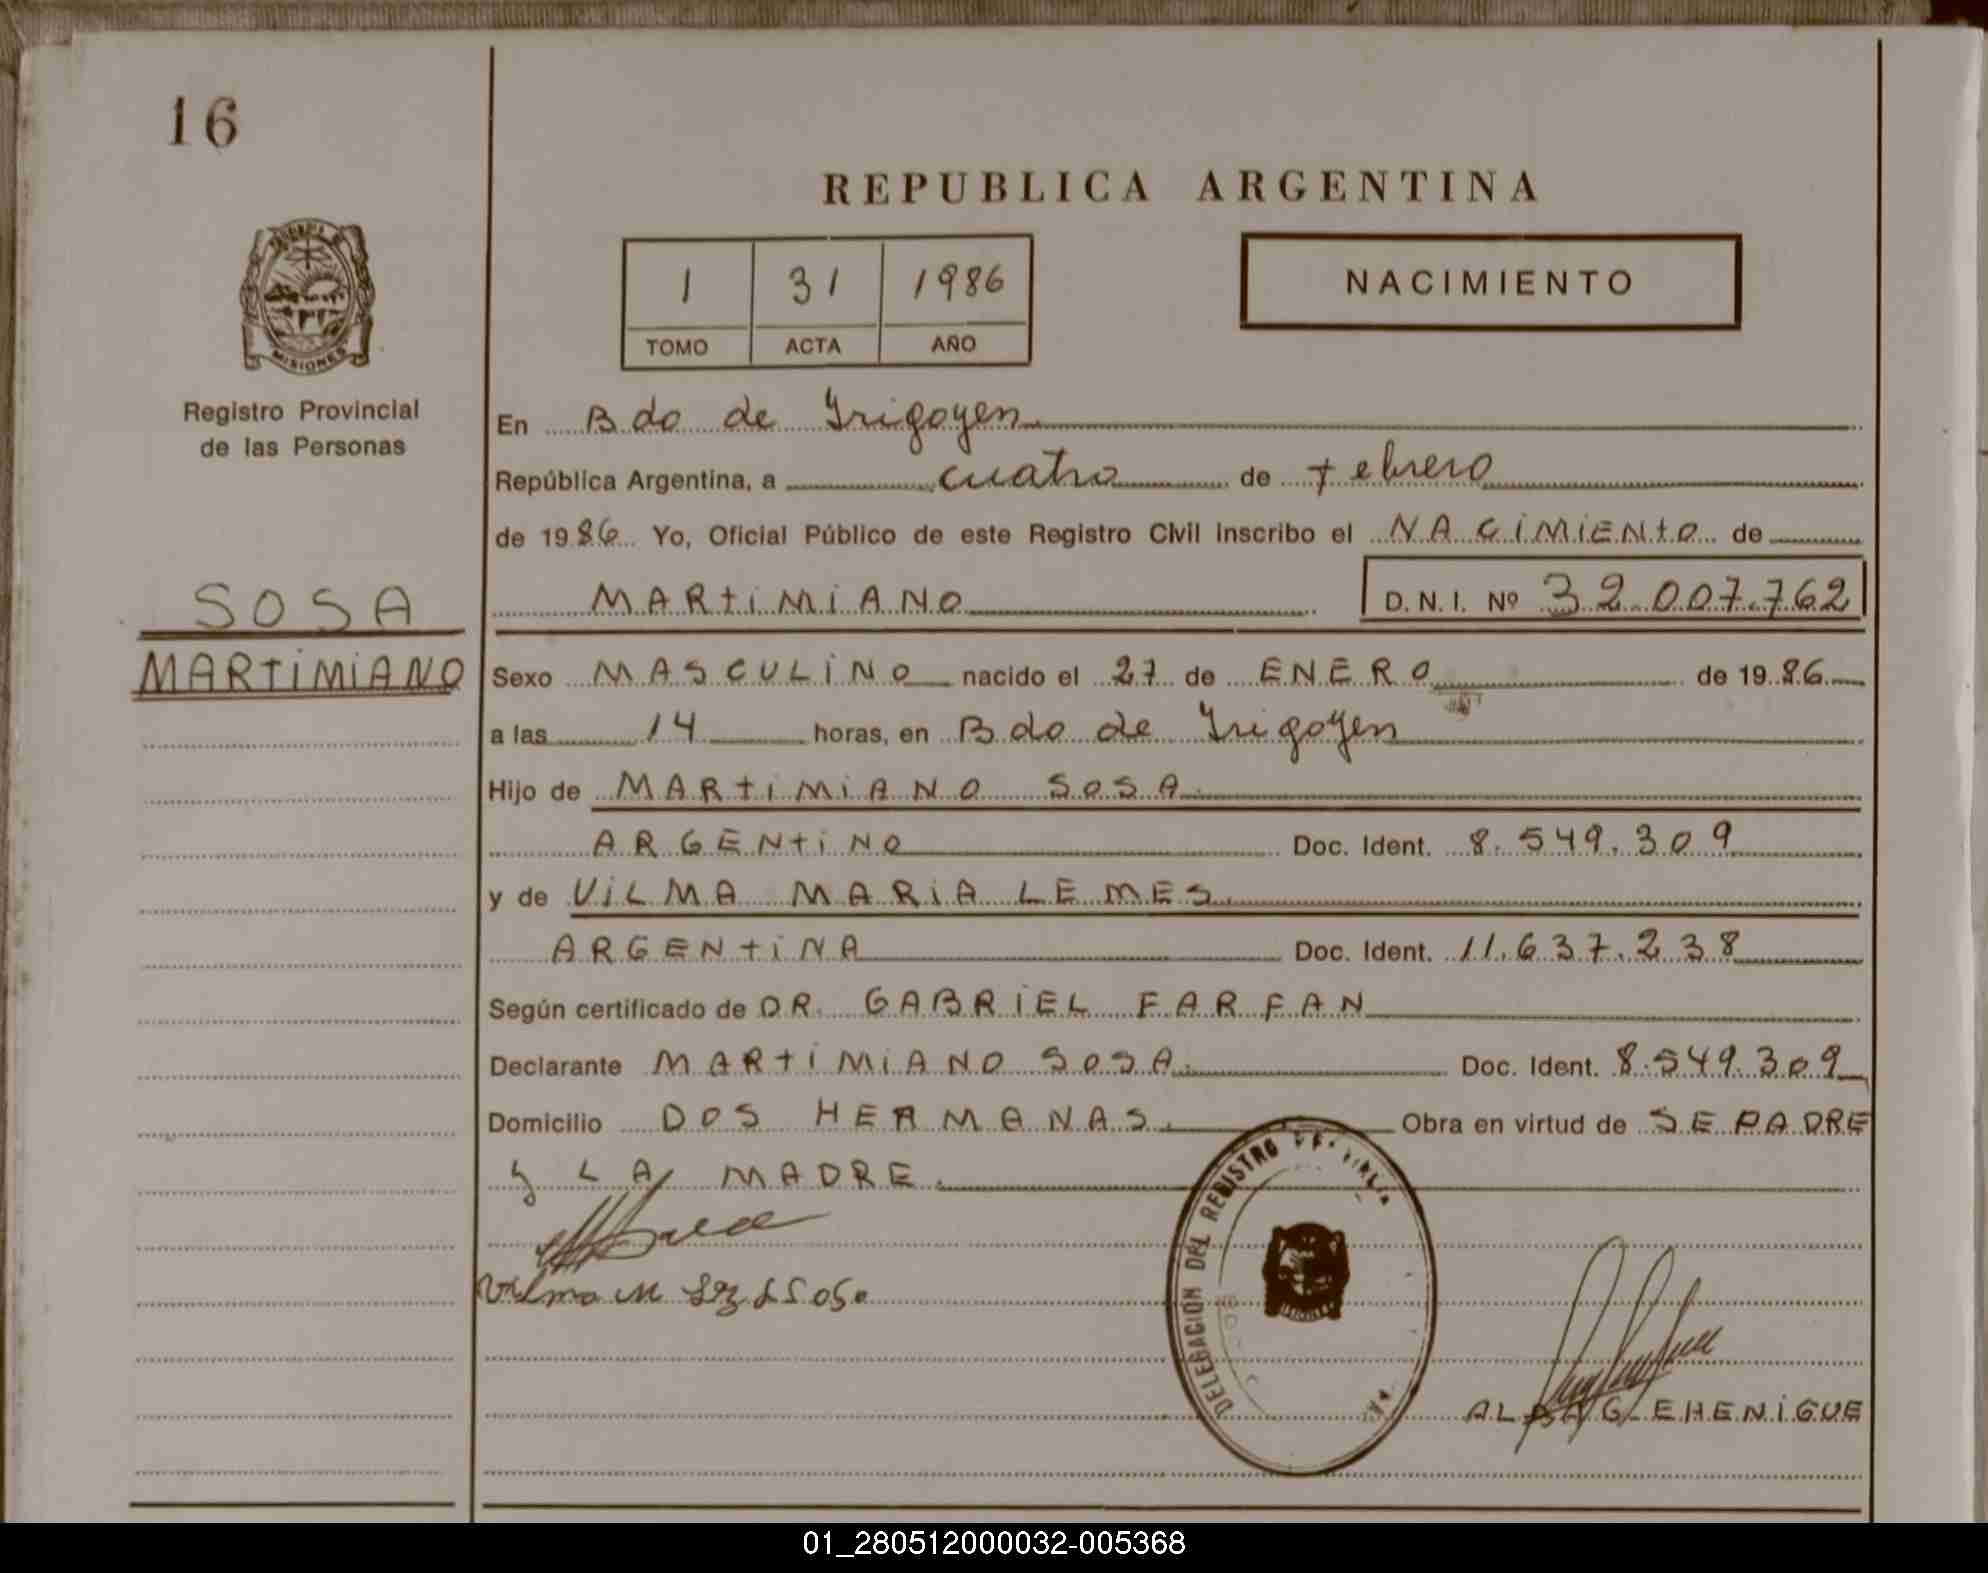 16
REPUBLICA ARGENTINA
1 31 1986
TOMO ACTA AÑO
NACIMIENTO
MISIONES
Registro Provincial
de las Personas
SOSA
MARTIMIANO
En Bdo de Yrigoyen
República Argentina, a cuatro de febrero
de 1986 Yo, Oficial Público de este Registro Civil inscribo el NACIMIENTO de
MARTIMIANO D. N. I. Nº 32.007.762
Sexo MASCULINO nacido el 27 de ENERO de 1986
a las 14 horas, en Bdo de Yrigoyen
Hijo de MARTIMIANO SOSA
ARGENTINO Doc. Ident. 8.549.309
y de VILMA MARIA LEMES
ARGENTINA Doc. Ident. 11.637.238
Según certificado de DR. GABRIEL FARFAN
Declarante MARTIMIANO SOSA Doc. Ident. 8.549.309
Domicilio DOS HERMANAS Obra en virtud de SE PADRE
y LA MADRE.
DELEGACION DEL REGISTRO
Vilma M Sosa
01_280512000032-005368